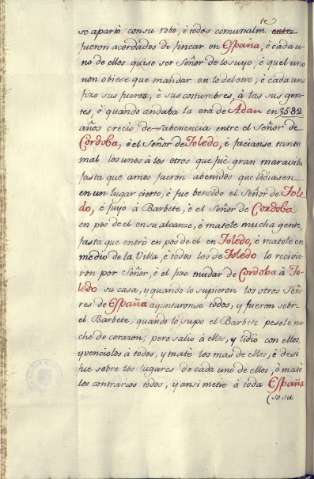 se
so apario consu robo, è todos comunalm. entre
fueron acordados de fincar en España, è cada u-
no de ellos quiso ser Señor de lo suyo, è quel uno
non obiese que mandar en lo del otro, è cada uno
fizo sus fueros, è sus costumbres, à las sus gen-
tes, è quando andaba la era de Adan en 3582
años crecio desabenencia entre el Señor de
Cordoba, è el Señor de Toledo, è facianse tanto
mal los unos à los otros que fue gran maravilla
fasta que amos fueron abenidos que lidiasen
en un lugar cierto, è fue bencido el Señor de Tole-
do, è fuyo à Barbete, è el Señor de Cordoba
en pos de el en su alcance, è matole mucha gente
fasta que entrò en pos de el en Toledo, è matole en
medio de la Villa, è todos los de Toledo lo recivie-
ron por Señor, è el fizo mudar de Cordoba à To-
ledo su casa, y quando lo supieron los otros Seño-
res de España ayuntaronse todos, y fueron sobre
el Barbete, quando lo supo el Barbete pesole mu-
cho de corazon, pero salio à ellos, y lidiò con ellos,
y venciolos à todos, y matò los mas de ellos, è desi
fue sobre los lugares de cada uno de ellos, è matò
los contrarios todos, y ansi metiò à toda España
so su